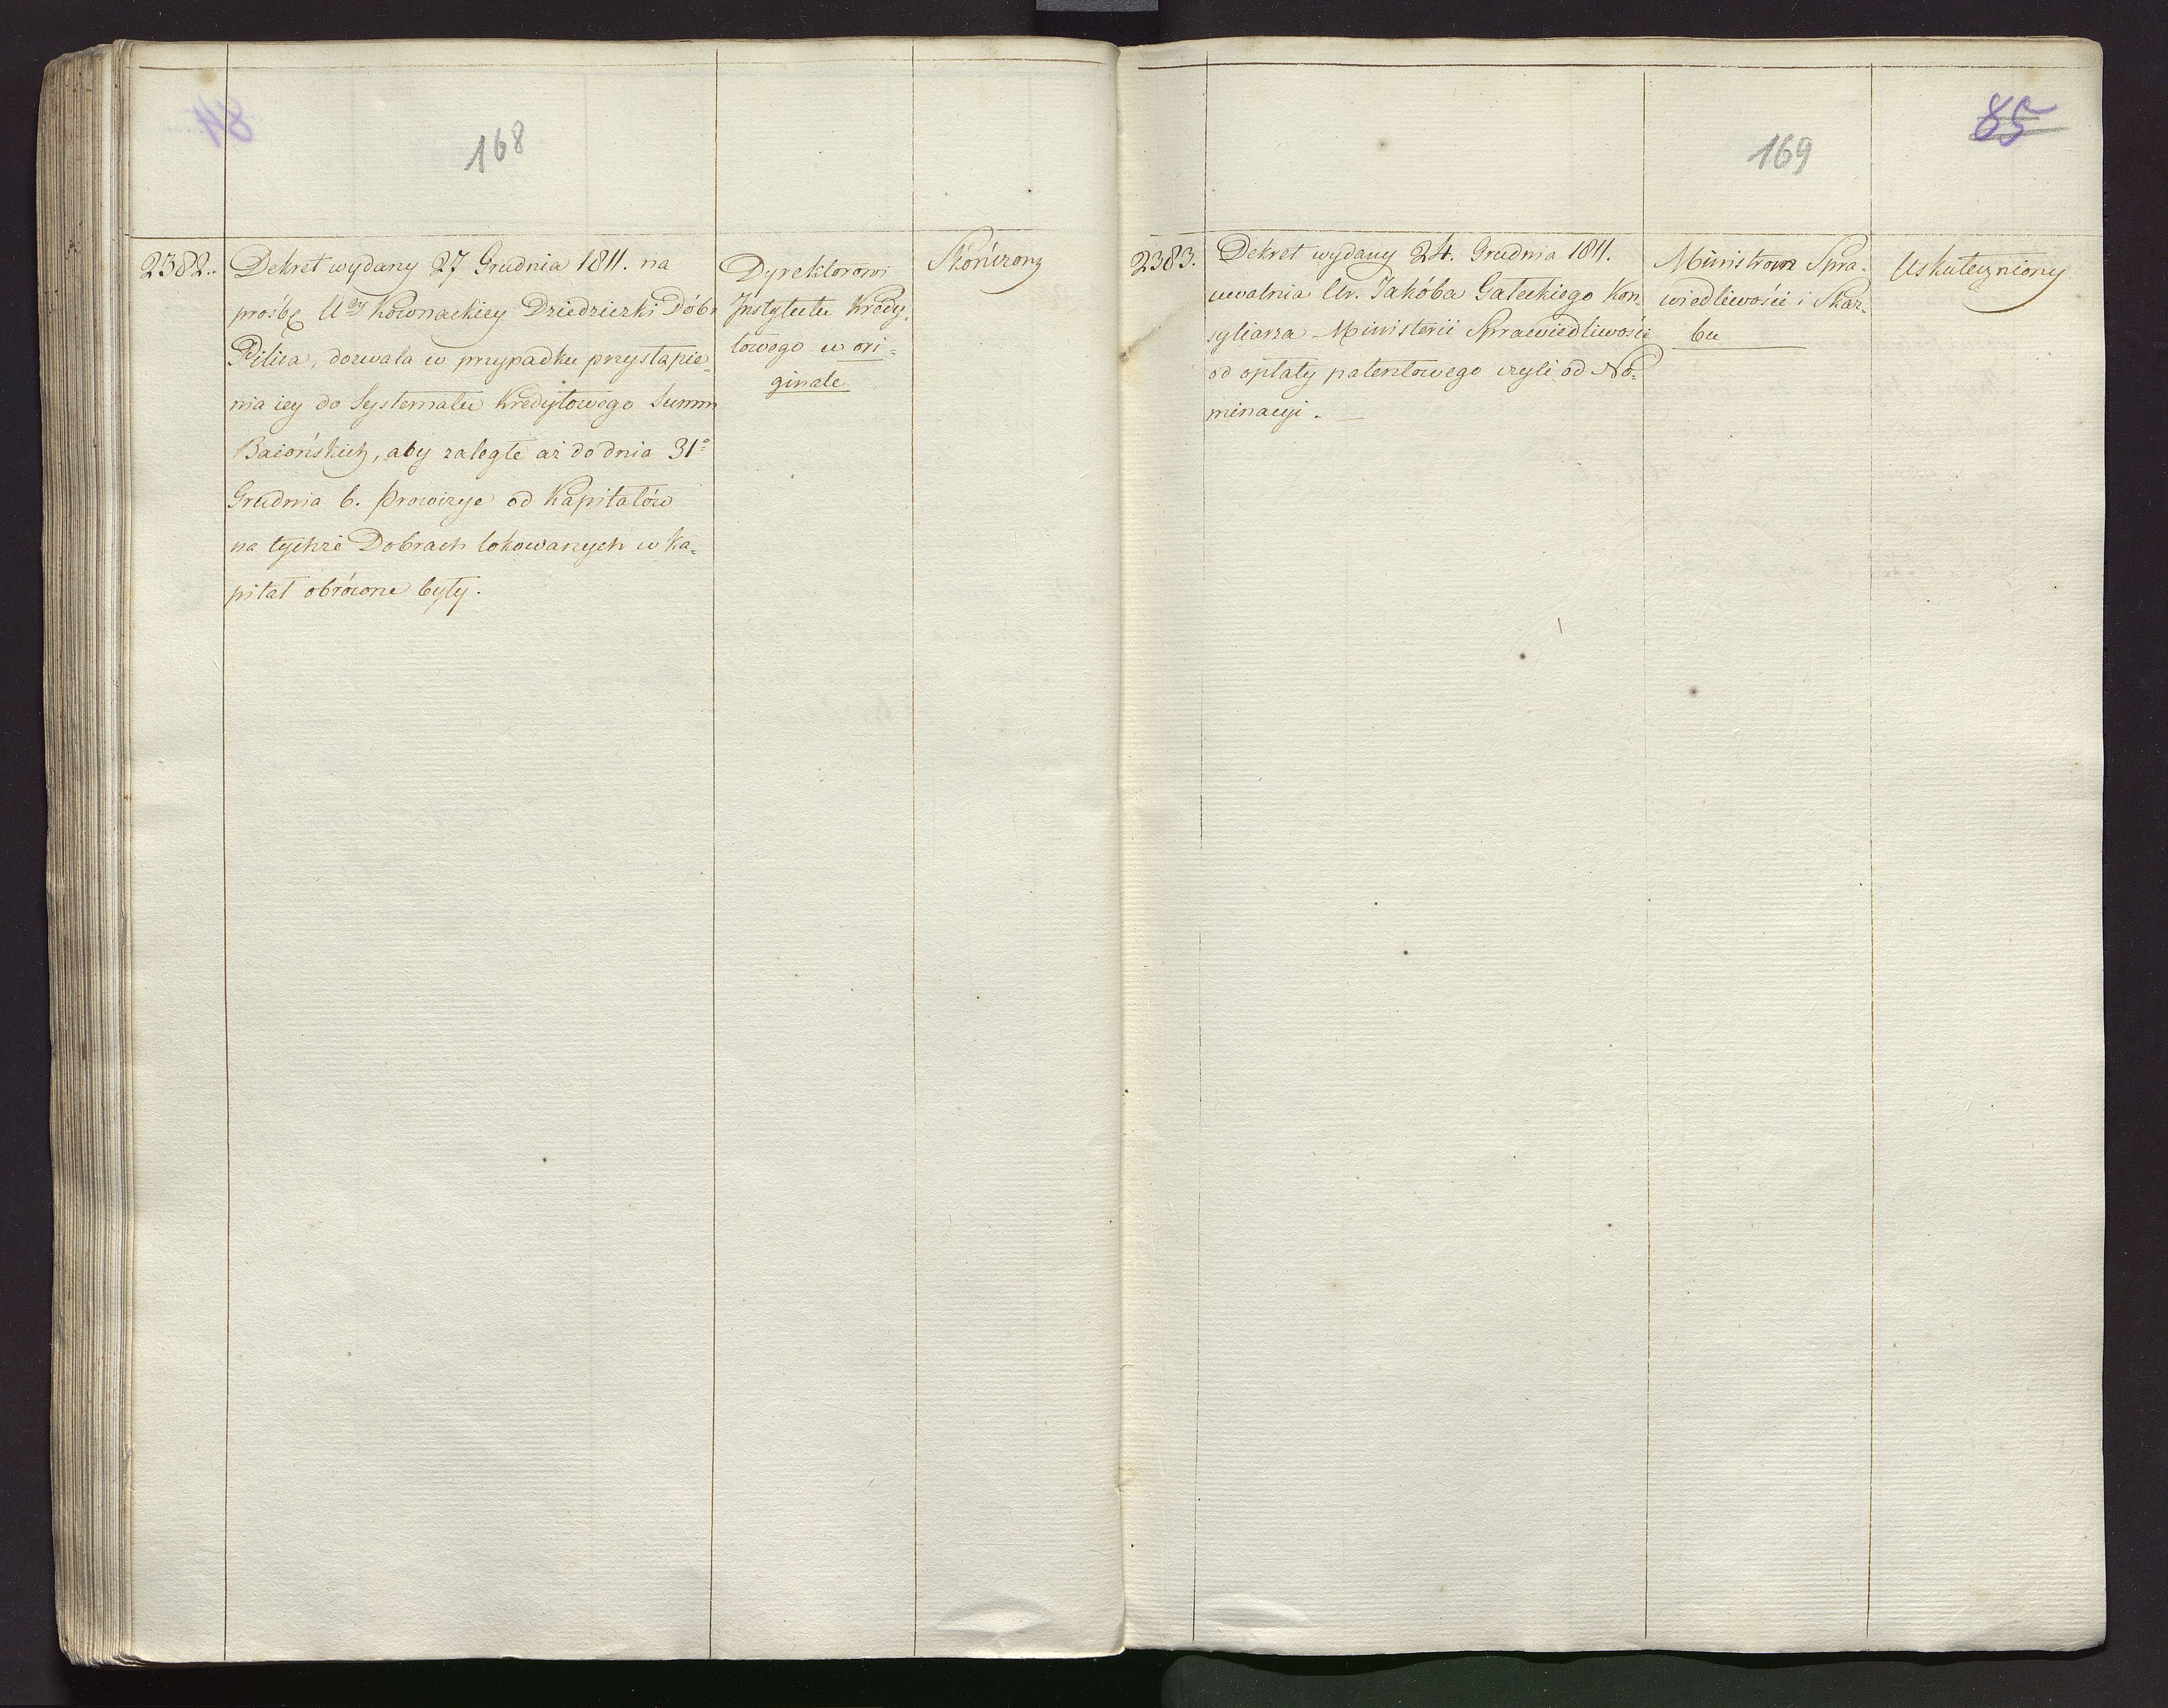 168
2382.
Dekret wydany 27 Grudnia 1811. na
prośbę Uey Kownackiey Dziedziczki Dóbr
Pilica, dozwala w przypadku przystąpie=
nia iey do Systematu Kredytowego Summ
Baiońskich, aby zaległe aż do dnia 31o
Grudnia b. prowizye od Kapitałów
na tychże Dobrach lokowanych w Ka=
pitał obrócone były.
Dyrektorowi
Instytutu Kredy=
towego w ori=
ginale
Skończony
169
85
2383.
Dekret wydany 24. Grudnia 1811.
uwalnia Ur. Jakóba Gałeckiego Kon=
syliarza Ministerii Sprawiedliwości
od opłaty patentowego czyli od No=
minacyi.
Ministrom Spra=
wiedliwości i Skar=
bu
Uskuteczniony